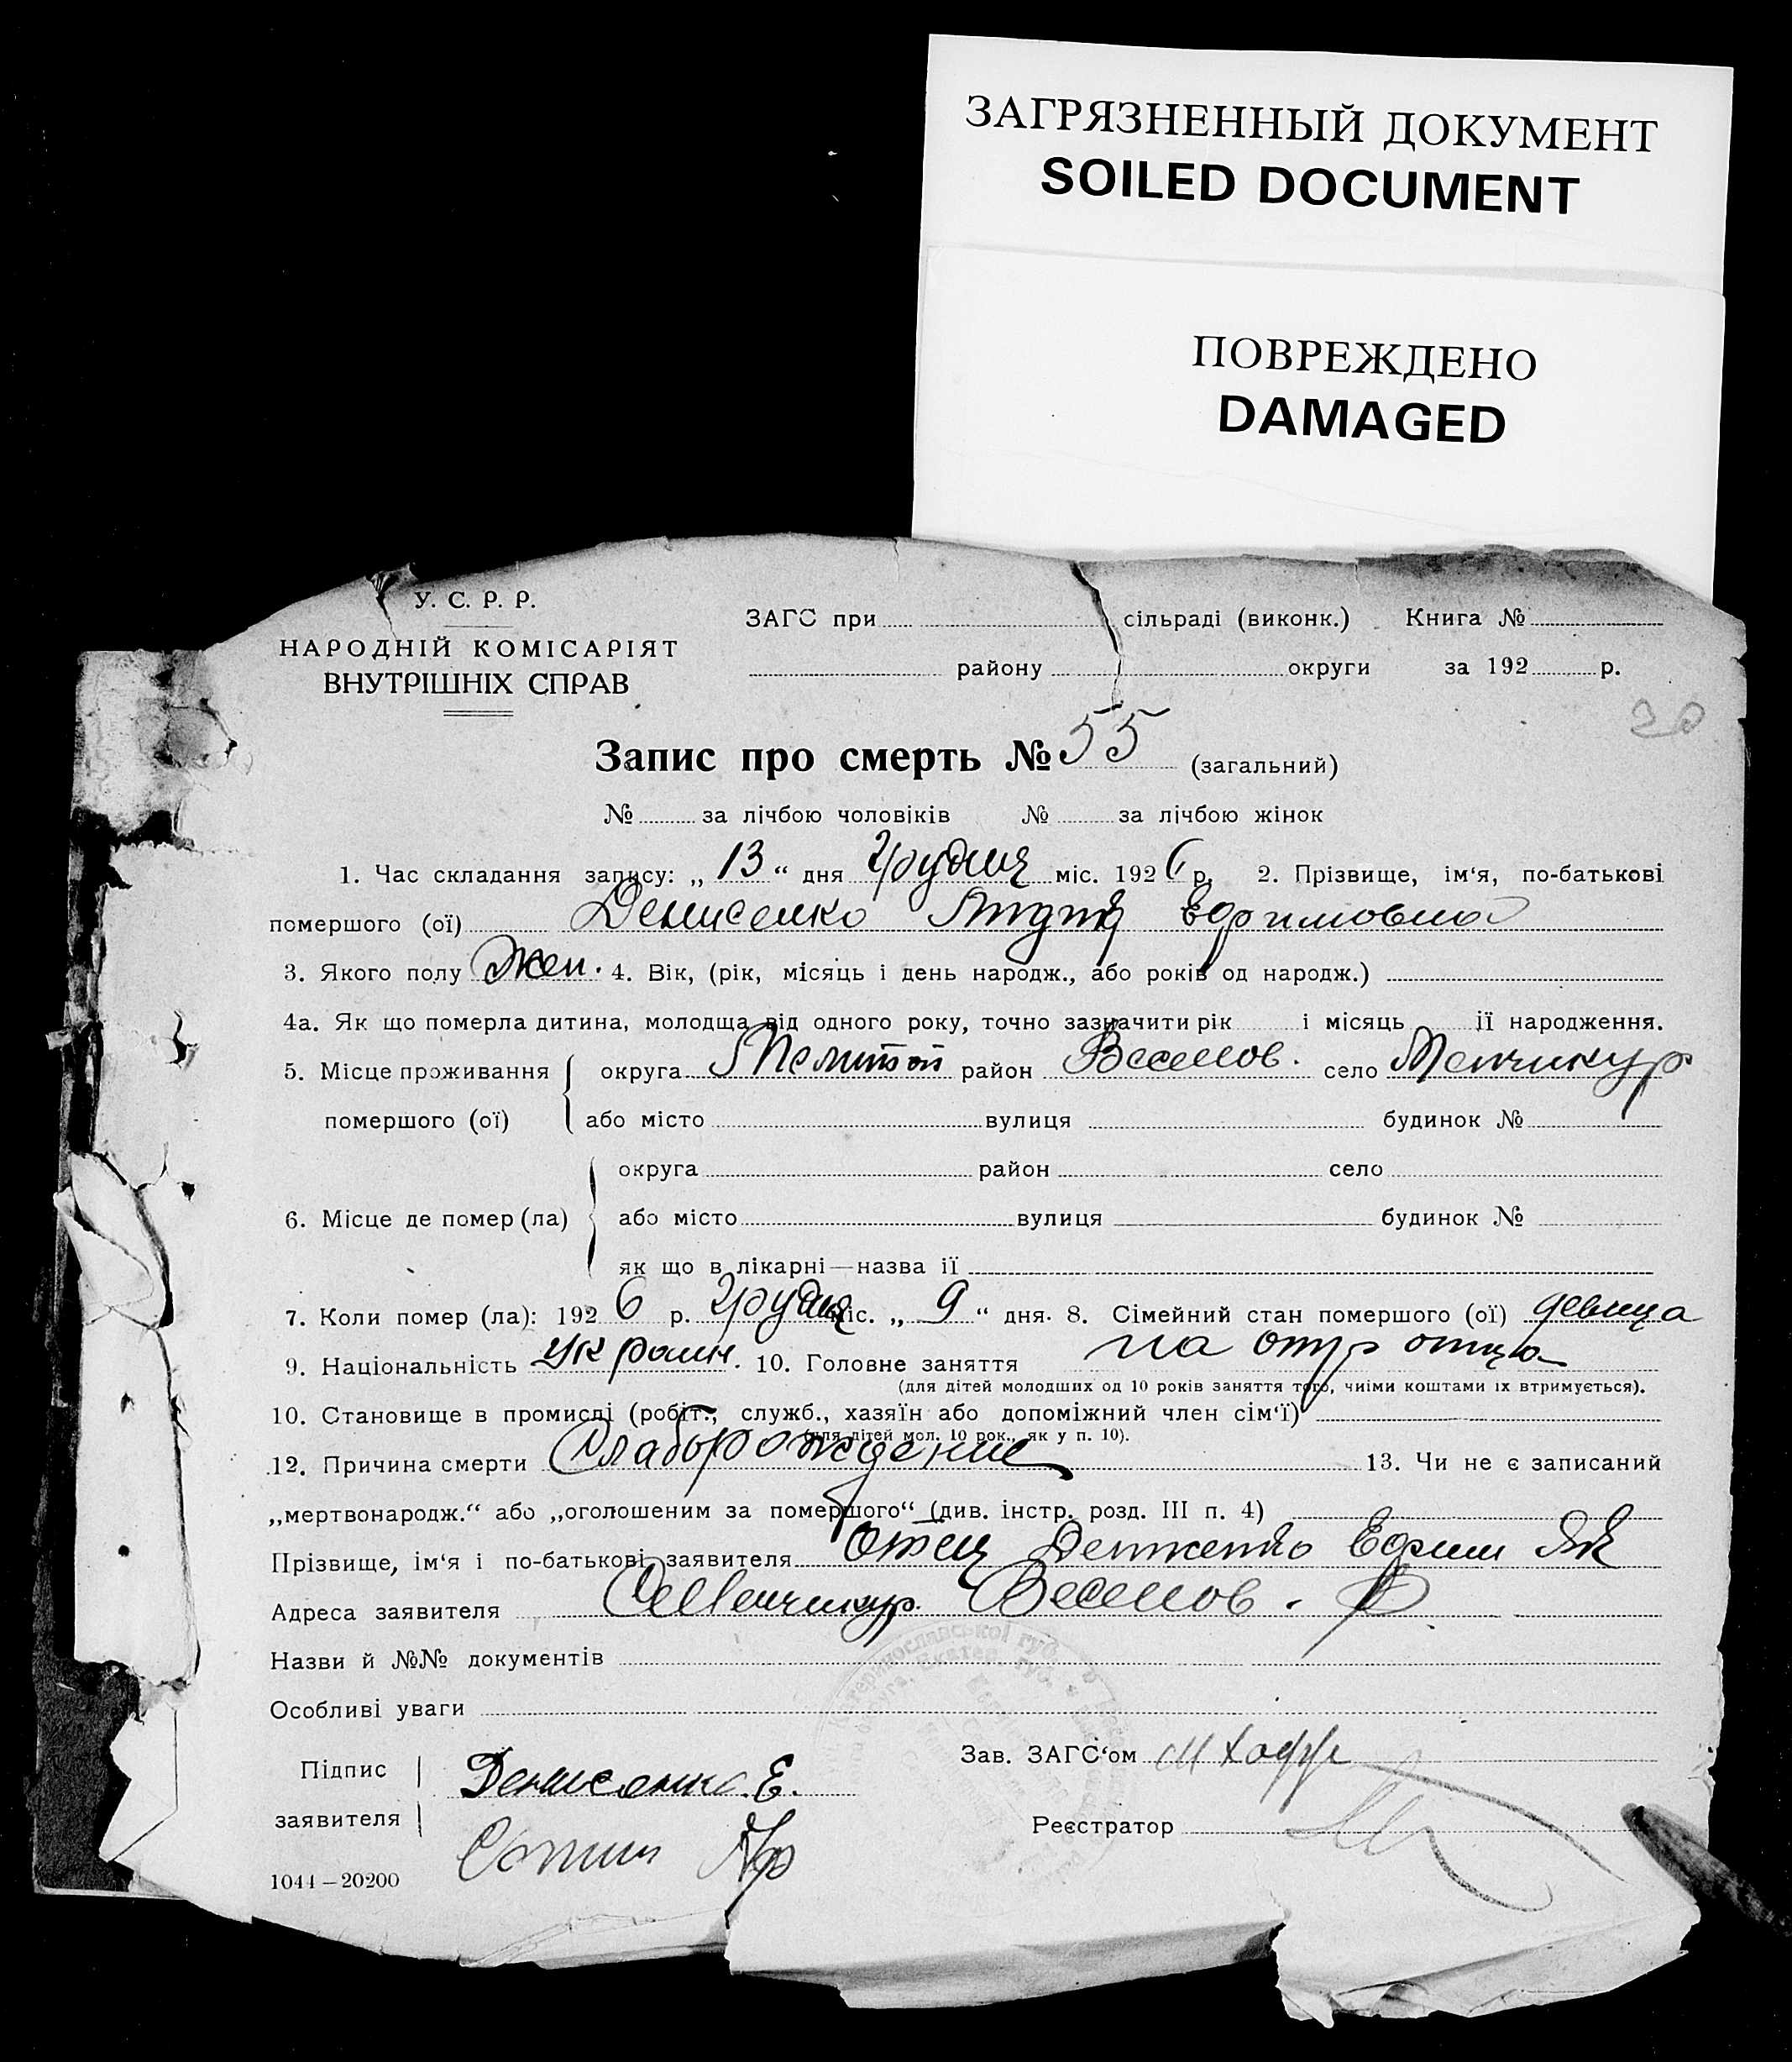 ЗАГРЯЗНЕННЫЙ ДОКУМЕНТ
SOILED DOCUMENT
ПОВРЕЖДЕНО
DAMAGED
У. С. Р. Р.
НАРОДНІЙ КОМІСАРІЯТ
ВНУТРІШНІХ СПРАВ
ЗАГС при сільраді (виконк.) Книга №
району округи за 192 р.
20
Запис про смерть № 55 (загальний)
№ за лічбою чоловіків № за лічбою жінок
1. Час складання запису: „ 13 “ дня Грудня міс. 1926 р. 2. Прізвище, ім‘я, по-батькові
помершого (ої) Денисенко Ефимовна
3. Якого полу Жен. 4. Вік, (рік, місяць і день народж., або років од народж.)
4а. Як що померла дитина, молодща від одного року, точно зазначити рік і місяць її народження.
5. Місце проживання округа Мелитоп район Веселов. село Менчикур
помершого (ої) або місто вулиця будинок №
округа район село
6. Місце де помер (ла) або місто вулиця будинок №
як що в лікарні—назва її
7. Коли помер (ла): 1926 р. Грудня міс. „ 9 “ дня. 8. Сімейний стан помершого (ої) девица
9. Національність Украин. 10. Головне заняття на отца
(для дітей молодших од 10 років заняття того, чиїми коштами їх втримується).
10. Становище в промислі (робіт., служб., хазяїн або допоміжний член сім‘ї)
(для дітей мол. 10 рок., як у п. 10).
12. Причина смерти Слаборождение 13. Чи не є записаний
„мертвонародж.“ або „оголошеним за помершого“ (див. інстр. розд. III п. 4)
Прізвище, ім‘я і по-батькові заявителя Отец Ефим Як
Адреса заявителя Менчикур Веселов. Р
Назви й №№ документів
Особливі уваги
Підпис Денисенко Е. Зав. ЗАГС‘ом
заявителя Реєстратор
1044—20200